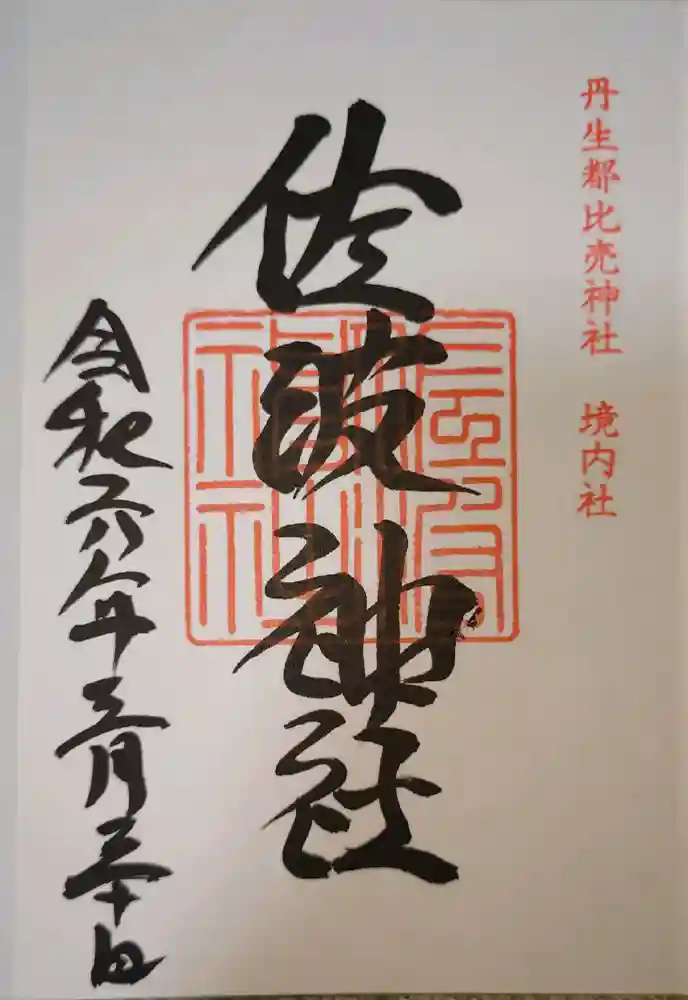 丹生都比売神社 境内社
佐波神社
令和六年三月三十日